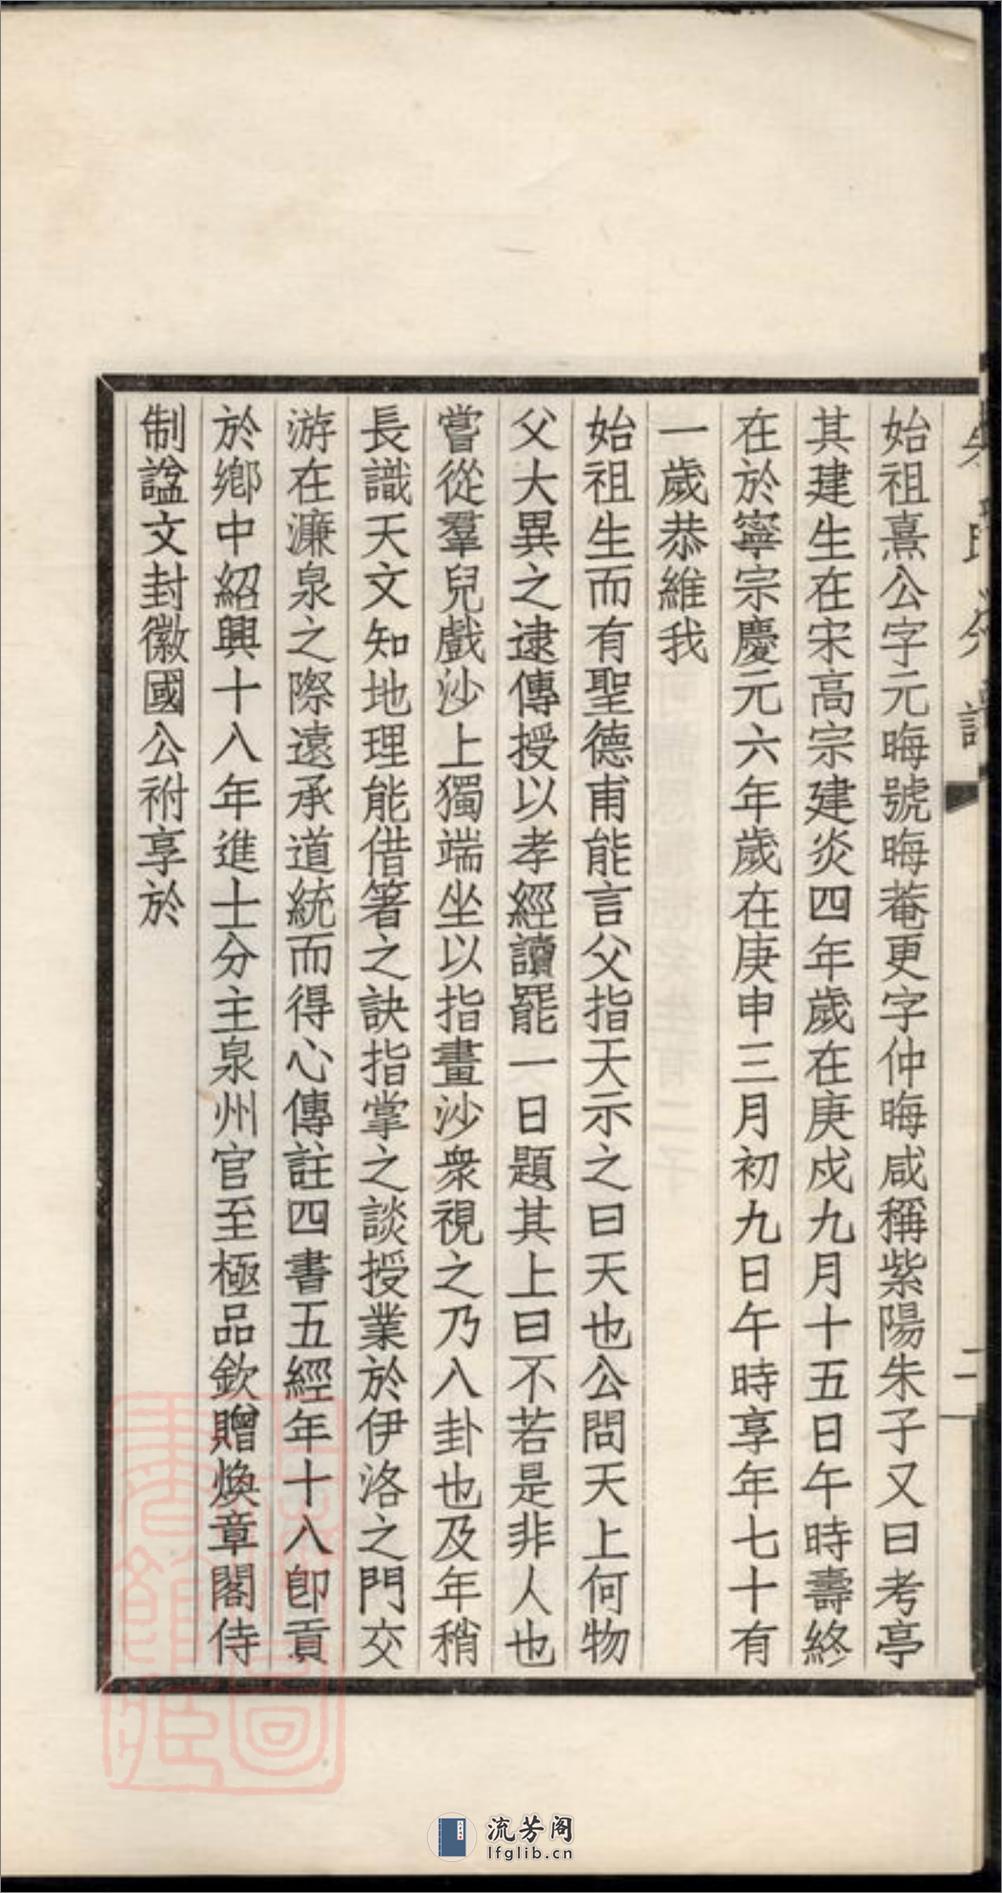 始祖熹公字元晦號晦菴更字仲晦咸稱紫陽朱子又曰考亭
其建生在宋高宗建炎四年歲在庚戍九月十五日午時壽終
在於寧宗慶元六年歲在庚申三月初九日午時享年七十有
一歲恭維我
始祖生而有聖德甫能言父指天示之曰天也公問天上何物
父大異之逮傳授以孝經讀罷一日題其上曰不若是非人也
嘗從羣兒戲沙上獨端坐以指畫沙衆視之乃八卦也及年稍
長識天文知地理能借箸之訣指掌之談授業於伊洛之門交
游在濂泉之際遠承道統而得心傳註四書五經年十八卽貢
於鄉中紹興十八年進士分主泉州官至極品欽贈煥章閣侍
制諡文封徽國公祔享於
二
流芳阁
lfglib.cn